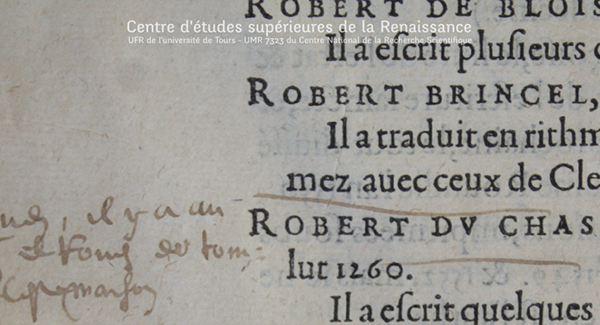 Centre d'études supérieures de la Renaissance
UFR de l'université de Tours - UMR 7323 du Centre National de la Recherche Scientifique
ROBERT DE BLOIS
Il a eſcrit pluſieurs
ROBERT BRINCEL,
Il a traduit en rithm
mez auec ceux de Cle
ROBERT DV CHAS
lut 1260.
Il a eſcrit quelques
il y a au